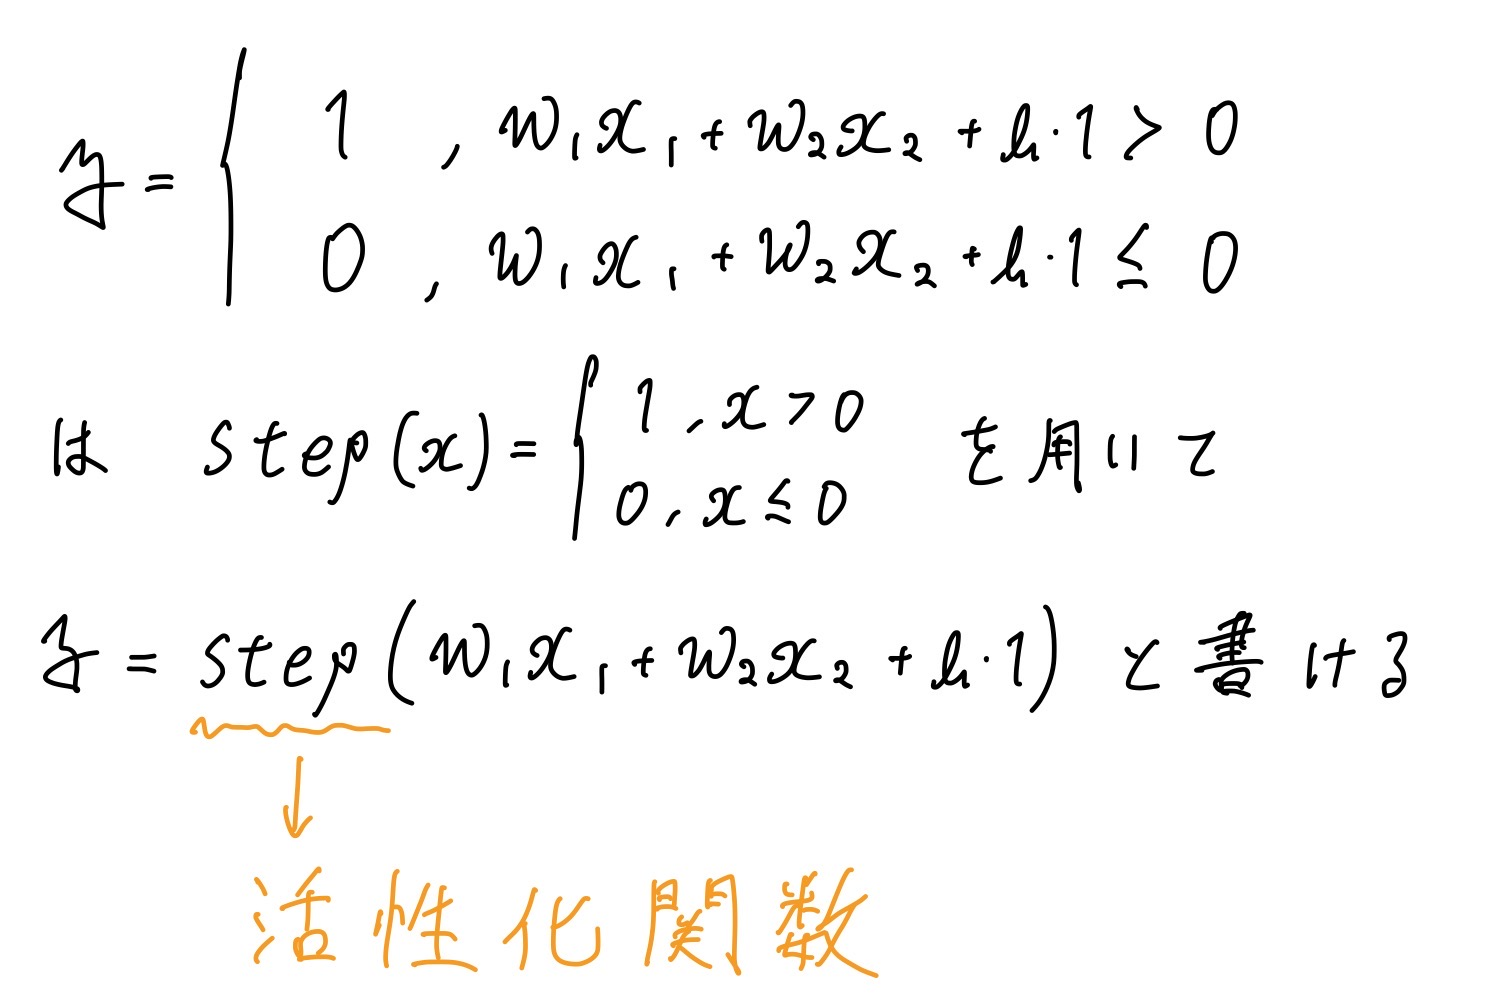 y = { 1 , w₁x₁ + w₂x₂ + h・1 > 0
0 , w₁x₁ + w₂x₂ + h・1 ≦ 0
は step(x) = { 1 , x > 0 を用いて
0 , x ≦ 0
y = step(w₁x₁ + w₂x₂ + h・1) と書ける
↓
活性化関数